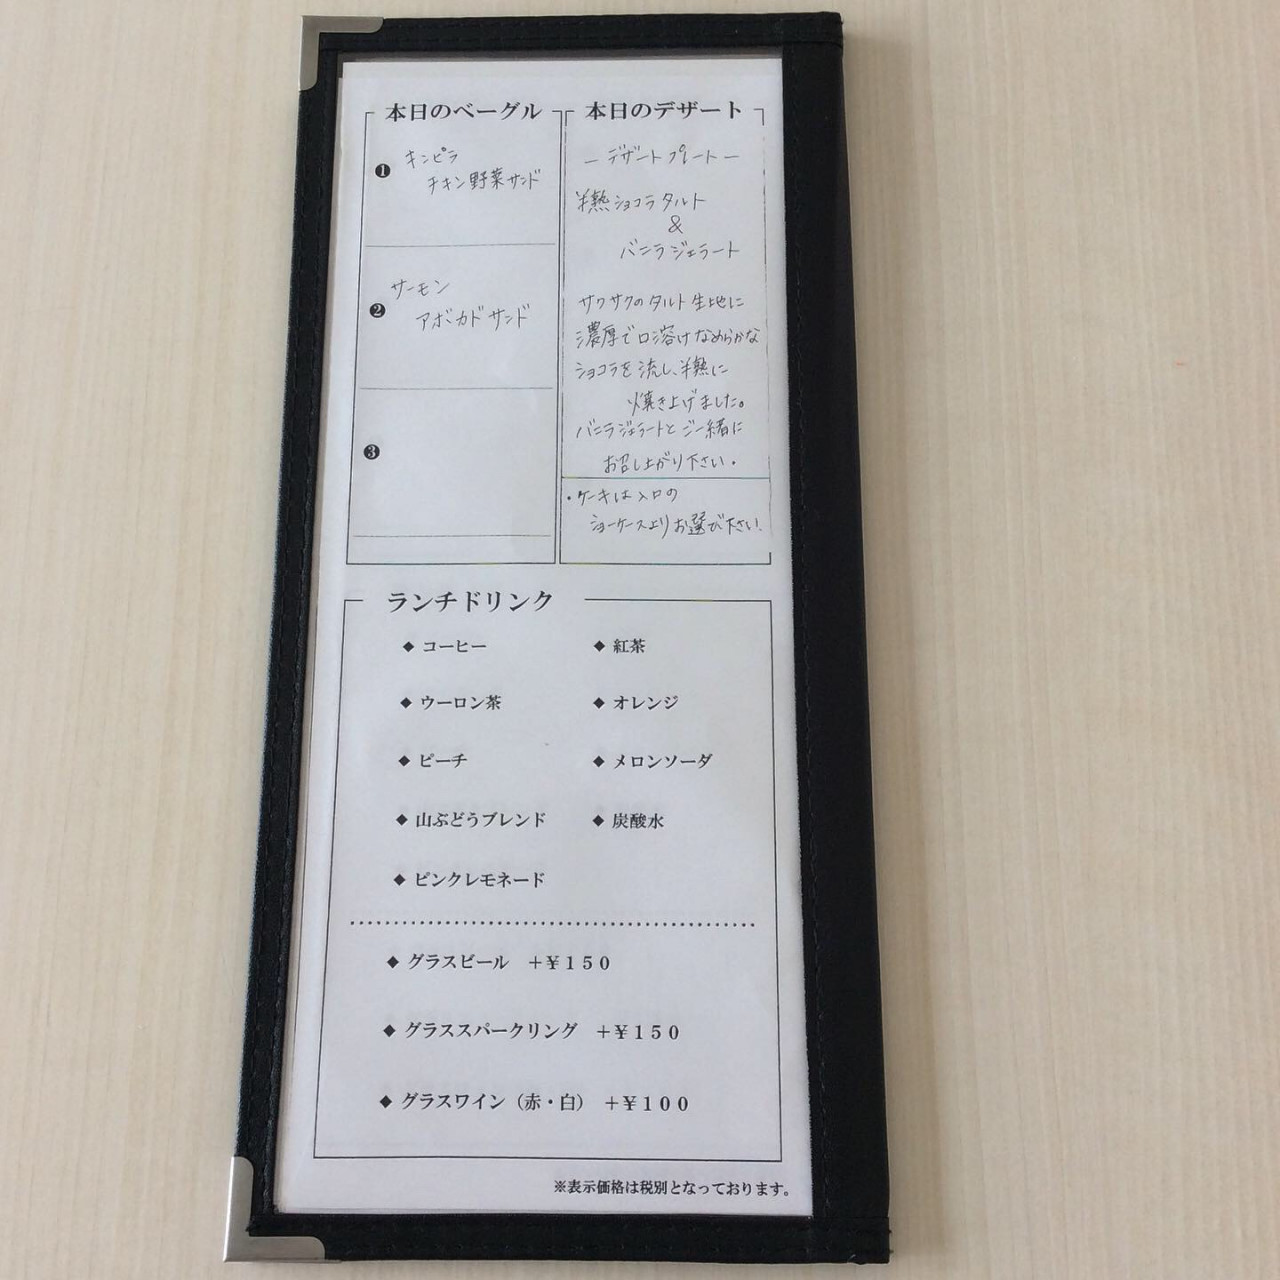 本日のベーグル
❶ キンピラ
チキン野菜サンド
❷ サーモン
アボカドサンド
❸
本日のデザート
― デザートプレート ―
半熟ショコラタルト
&
バニラジェラート
サクサクのタルト生地に
濃厚で口溶けなめらかな
ショコラを流し、半熟に
焼き上げました。
バニラジェラートとご一緒に
お召し上がり下さい。
・ケーキは入口の
ショーケースよりお選び下さい。
ランチドリンク
◆ コーヒー
◆ 紅茶
◆ ウーロン茶
◆ オレンジ
◆ ピーチ
◆ メロンソーダ
◆ 山ぶどうブレンド
◆ 炭酸水
◆ ピンクレモネード
◆ グラスビール +¥150
◆ グラススパークリング +¥150
◆ グラスワイン（赤・白） +¥100
※表示価格は税別となっております。